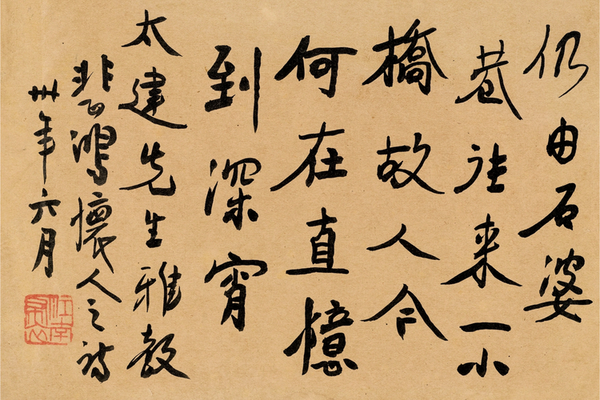 仍由石婆
巷往来一小
橋故人今
何在直憶
到深宵
太建先生雅教
悲鴻懷人之詩
卅年六月